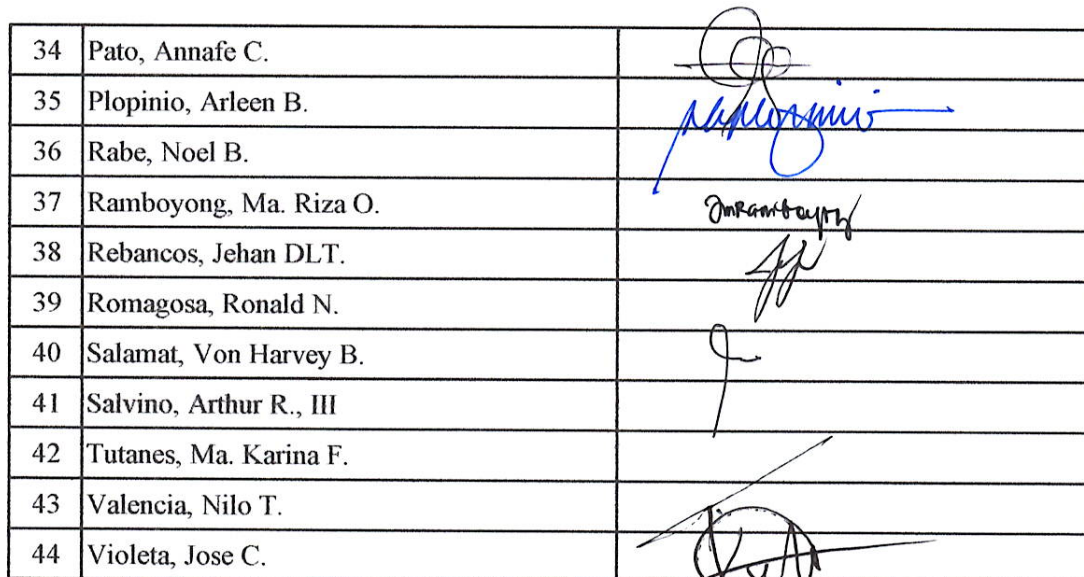 34 Pato, Annafe C.
35 Plopinio, Arleen B.
36 Rabe, Noel B.
37 Ramboyong, Ma. Riza O.
38 Rebancos, Jehan DLT.
39 Romagosa, Ronald N.
40 Salamat, Von Harvey B.
41 Salvino, Arthur R., III
42 Tutanes, Ma. Karina F.
43 Valencia, Nilo T.
44 Violeta, Jose C.